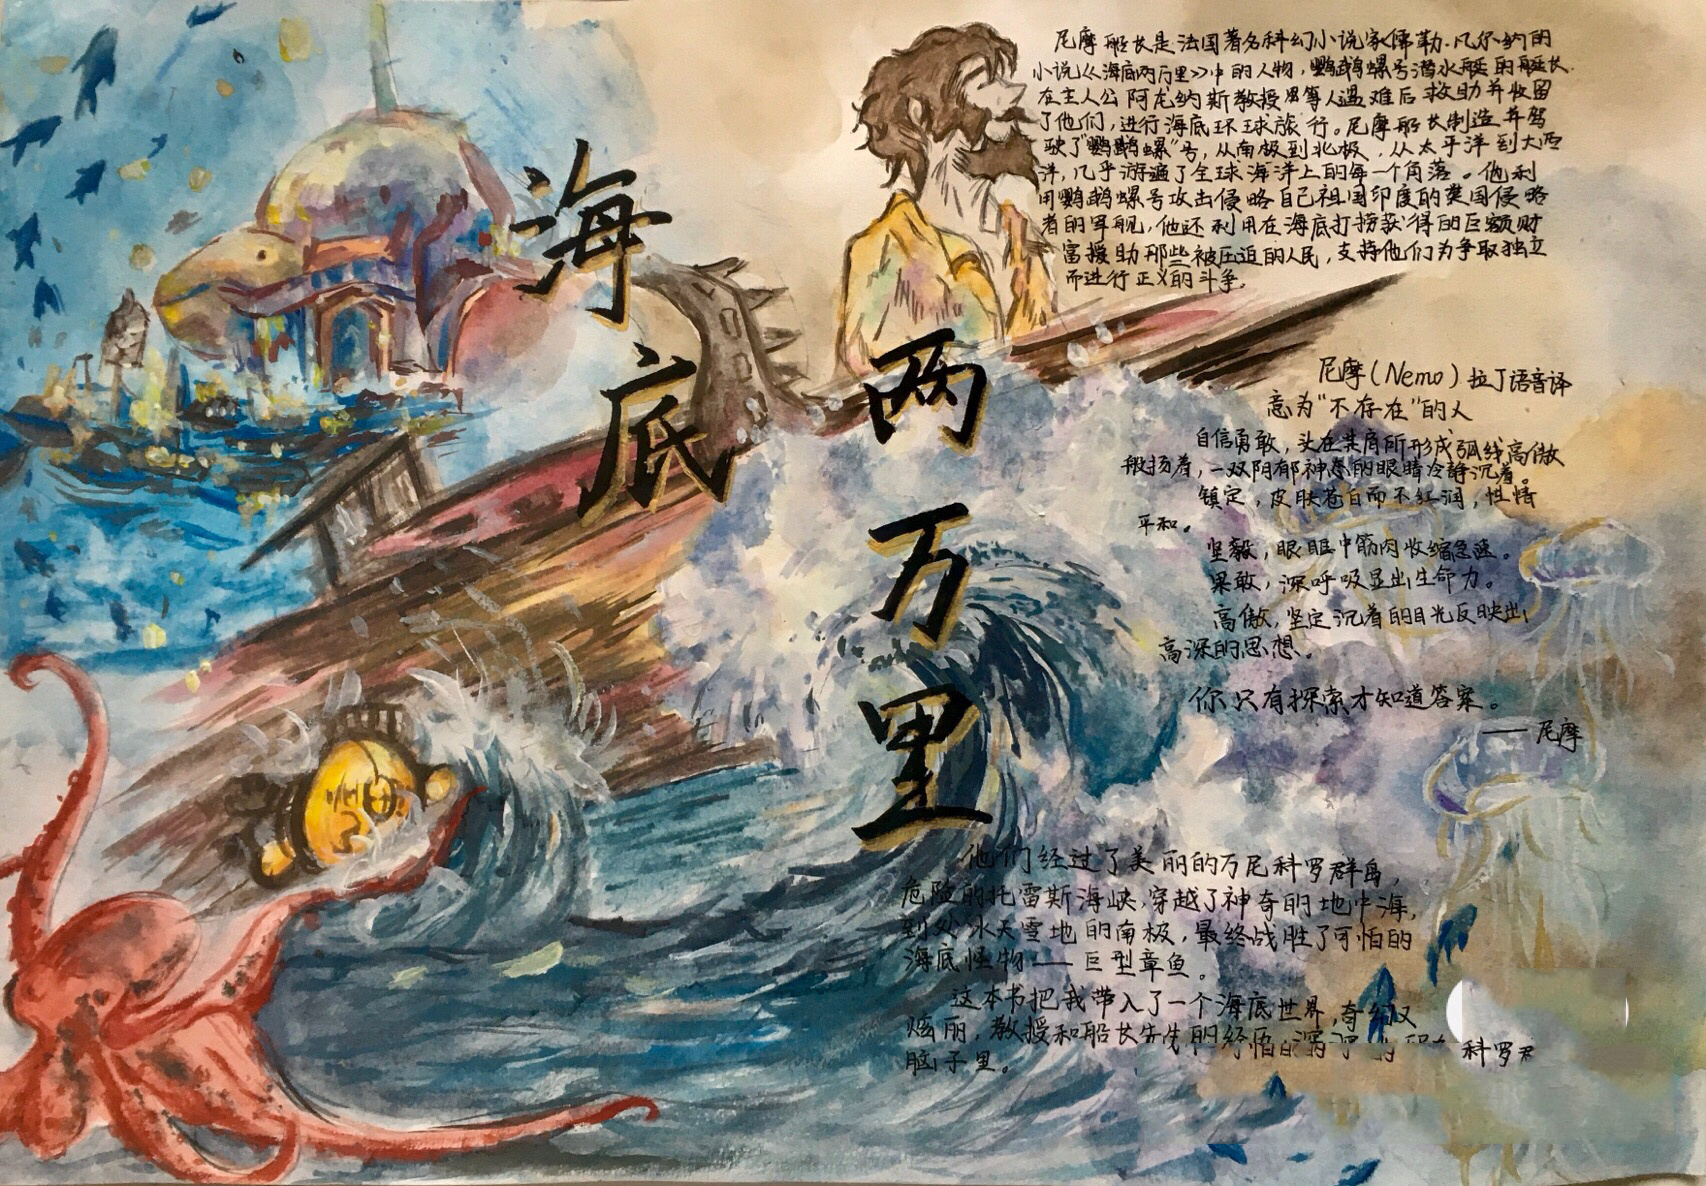 海底两万里
尼摩船长是法国著名科幻小说家儒勒·凡尔纳的
小说《海底两万里》中的人物，鹦鹉螺号潜水艇的艇长.
在主人公阿龙纳斯教授男等人遇难后救助并收留
了他们，进行海底环球旅行。尼摩船长制造并驾
驶了“鹦鹉螺”号，从南极到北极，从太平洋到大西
洋，几乎游遍了全球海洋上的每一个角落。他利
用鹦鹉螺号攻击侵略自己祖国印度的英国侵略
者的军舰，他还利用在海底打捞获得的巨额财
富援助那些被压迫的人民，支持他们为争取独立
而进行正义的斗争。
尼摩（Nemo）拉丁语音译
意为“不存在”的人
自信勇敢，头在其肩所形成弧线高傲
般扬着，一双阴郁神态的眼睛冷静沉着。
镇定，皮肤苍白而不红润，性情
平和。
坚毅，眼眶中筋肉收缩急速。
果敢，深呼吸显出生命力。
高傲，坚定沉着的目光反映出
高深的思想。
你只有探索才知道答案。
——尼摩
他们经过了美丽的万尼科罗群岛，
危险的托雷斯海峡，穿越了神奇的地中海，
到处冰天雪地的南极，最终战胜了可怕的
海底怪物——巨型章鱼。
这本书把我带入了一个海底世界，奇幻又
炫丽，教授和船长先生的经历
科罗
脑子里。